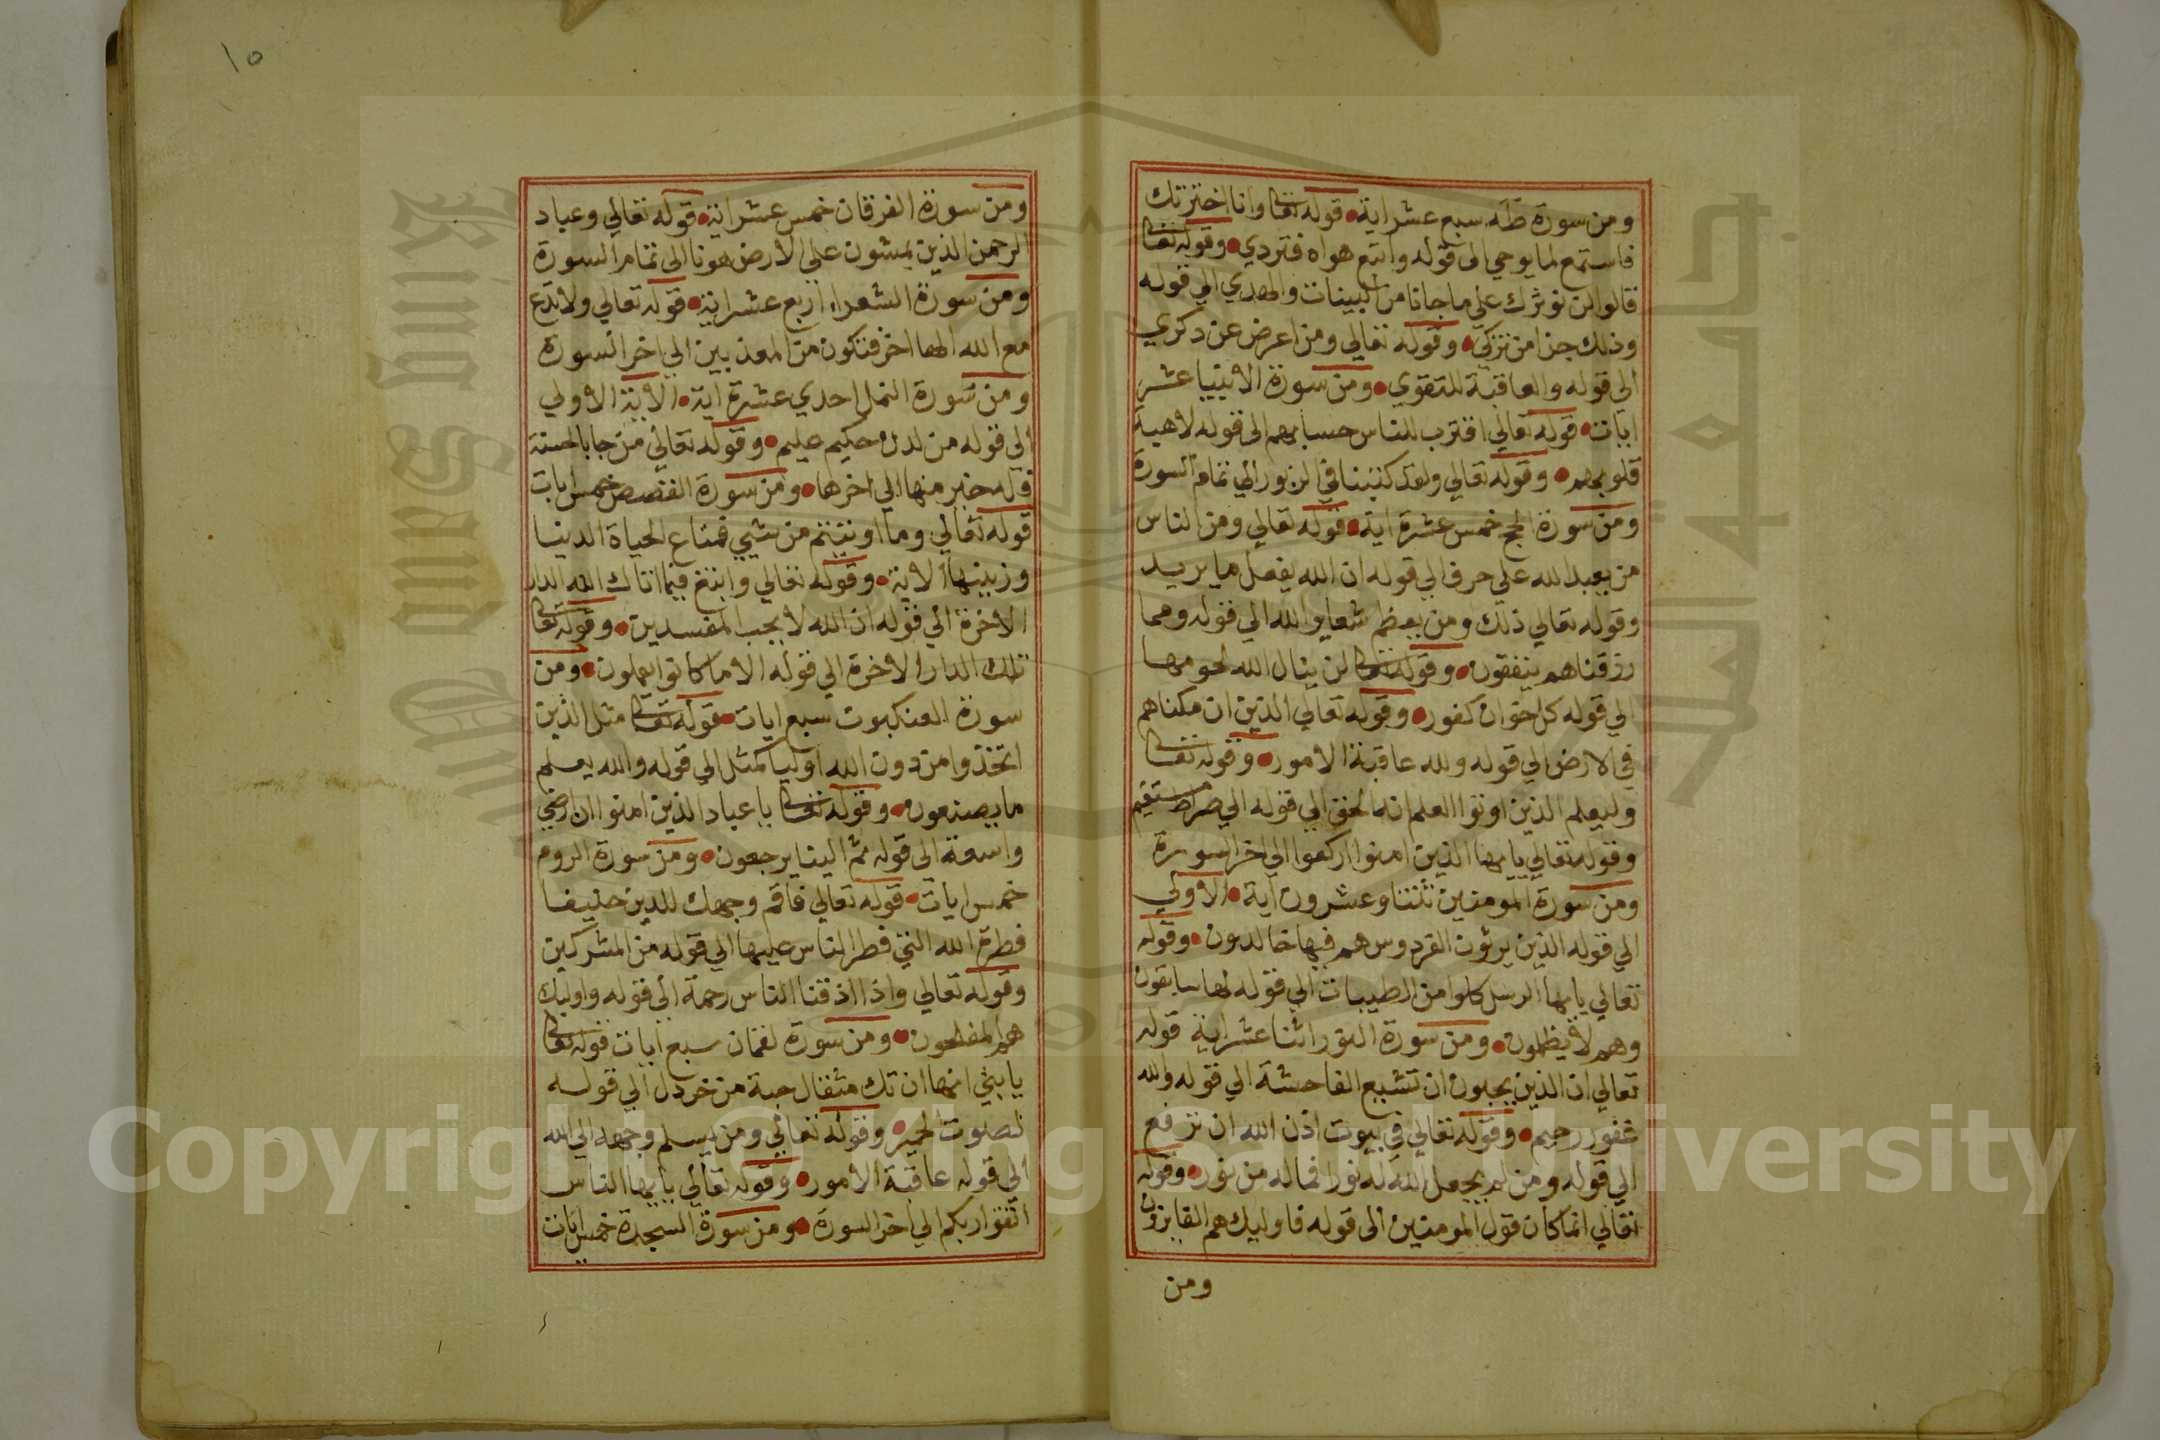 ومن سورة طه سبع عشر اية قوله تعالى وانا اخترتك
فاستمع لما يوحي الى قوله واتبع هواه فتردي وقوله تعالى
قالوا لن نوثرك علي ما جانا من البينات والهدي الي قوله
وذلك جزا من تزكي وقوله تعالي ومن اعرض عن ذكري
الى قوله والعاقبة للتقوي ومن سورة الانبيا عشر
ايات قوله تعالي اقترب للناس حسابهم الى قوله لاهية
قلوبهم وقوله تعالي ولقد كتبنا في الزبور الي تمام السورة
ومن سورة الحج خمس عشرة اية قوله تعالي ومن الناس
من يعبد الله علي حرف الي قوله ان الله يفعل ما يريد
وقوله تعالي ذلك ومن يعظم شعاير الله الي قوله ومما
رزقناهم ينفقون وقوله تعالى لن ينال الله لحومها
الي قوله كل خوان كفور وقوله تعالي الذين ان مكناهم
في الارض الي قوله ولله عاقبة الامور وقوله تعالى
وليعلم الذين اوتوا العلم انه الحق الي قوله الي صراط مستقيم
وقوله تعالي يايها الذين امنوا اركعوا الي اخر السورة
ومن سورة المومنين ثنتا وعشرون اية الاولي
الي قوله الذين يرثون الفردوس هم فيها خالدون وقوله
تعالي يايها الرسل كلوا من الطيبات الي قوله لها سابقون
وهم لا يظلمون ومن سورة النور اثنا عشر اية قوله
تعالي ان الذين يحبون ان تشيع الفاحشة الي قوله والله
غفور رحيم وقوله تعالي في بيوت اذن الله ان ترفع
الي قوله ومن لم يجعل الله له نورا فما له من نور وقوله
تعالي انما كان قول المومنين الى قوله فاوليك هم الفايزون
ومن
١٥
ومن سورة الفرقان خمس عشر اية قوله تعالي وعباد
الرحمن الذين يمشون علي الارض هونا الى تمام السورة
ومن سورة الشعراء اربع عشر اية قوله تعالي ولا تدع
مع الله الها اخر فتكون من المعذبين الي اخر السورة
ومن سورة النمل احدي عشرة اية الاية الاولي
الى قوله من لدن حكيم عليم وقوله تعالي من جا بالحسنة
فله خير منها الي اخرها ومن سورة القصص خمس ايات
قوله تعالي وما اوتيتم من شيي فمتاع الحياة الدنيا
وزينتها الاية وقوله تعالي وابتغ فيما اتاك الله الدار
الاخرة الي قوله ان الله لا يحب المفسدين وقوله تعالى
تلك الدار الاخرة الي قوله الا ما كانوا يعملون ومن
سورة العنكبوت سبع ايات قوله تعالى مثل الذين
اتخذوا من دون الله اوليا كمثل الي قوله والله يعلم
ما يصنعون وقوله تعالى يا عبادي الذين امنوا ان ارضي
واسعة الي قوله ثم الينا يرجعون ومن سورة الروم
خمس ايات قوله تعالي فاقم وجهك للدين حنيفا
فطرة الله التي فطر الناس عليها الي قوله من المشركين
وقوله تعالي واذا اذقنا الناس رحمة الي قوله واوليك
هم المفلحون ومن سورة لقمان سبع ايات قوله تعالى
يا بني انها ان تك مثقال حبة من خردل الي قوله
لصوت الحمير وقوله تعالي ومن يسلم وجهه الي الله
الي قوله عاقبة الامور وقوله تعالي يايها الناس
اتقوا ربكم الي اخر السورة ومن سورة السجدة خمس ايات
Copyright © King Saud University